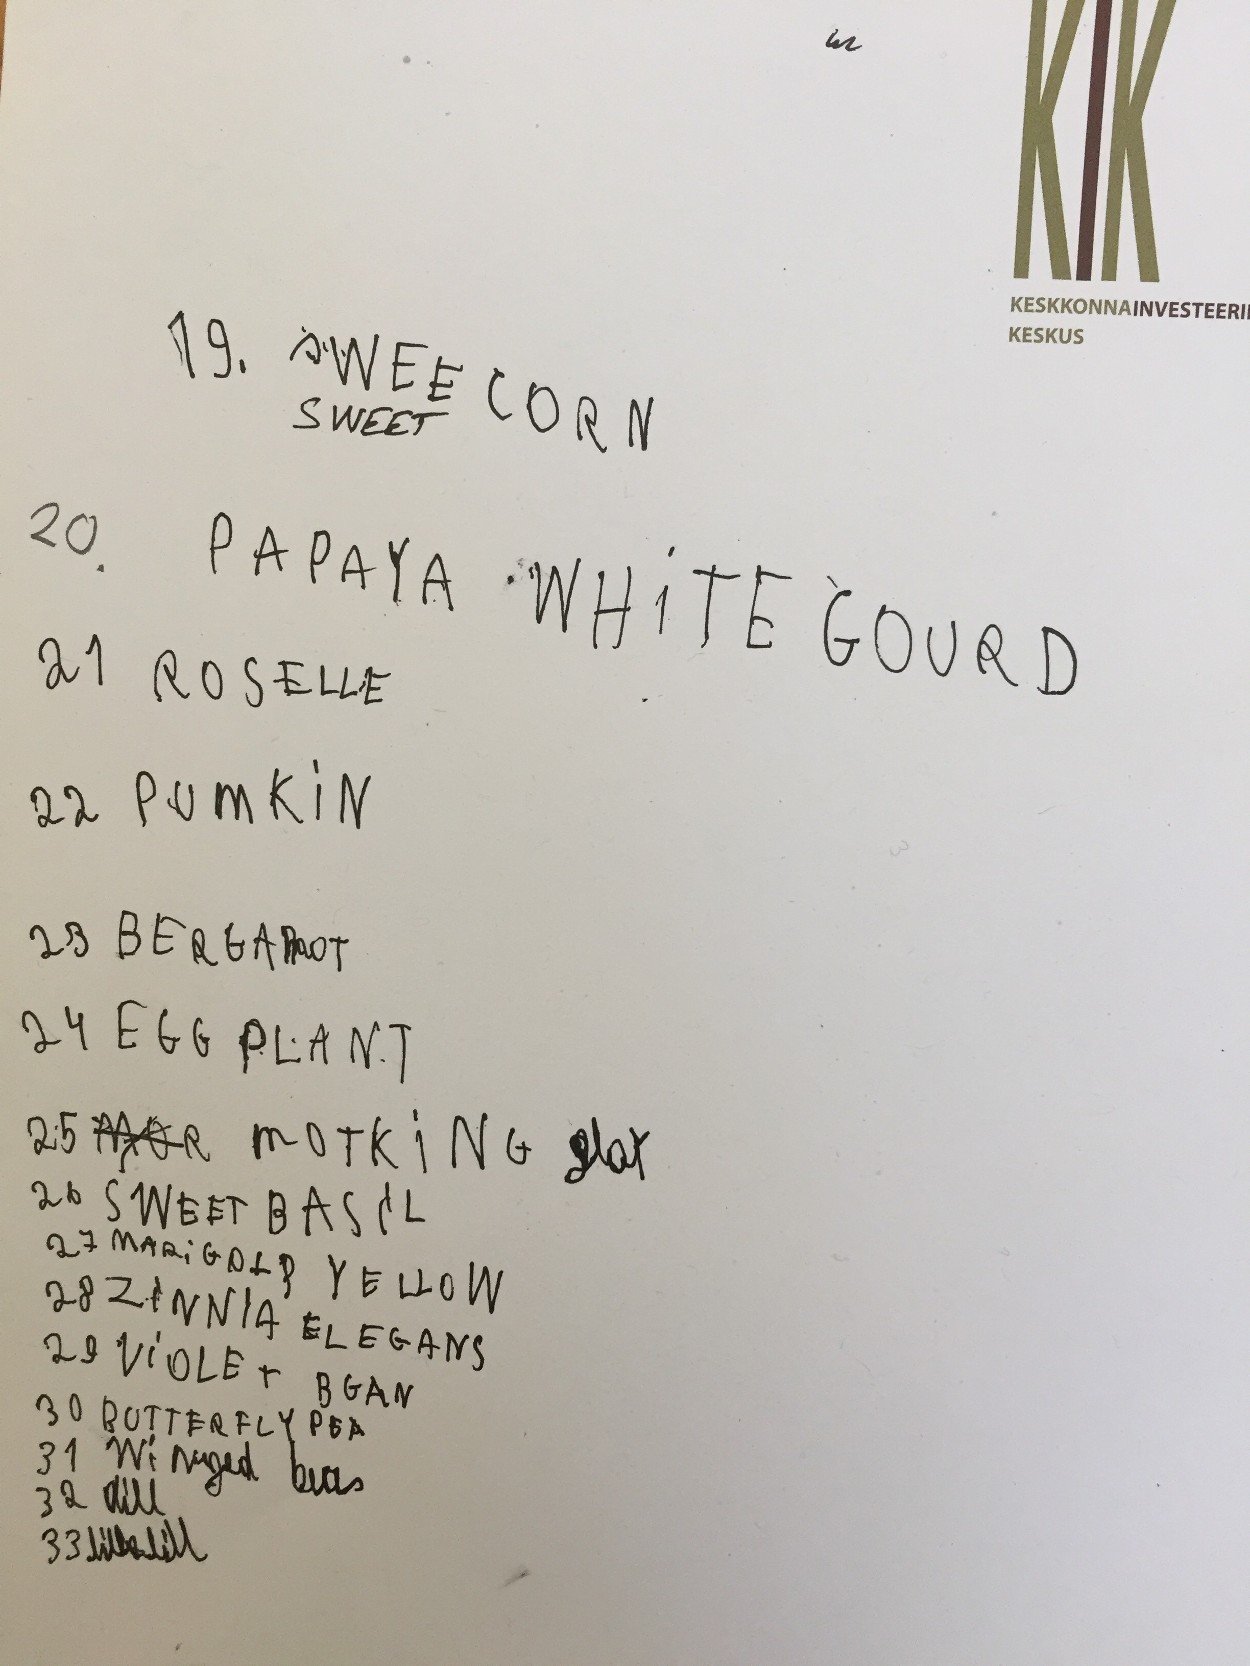 KIK
KESKKONNAINVESTEERI
KESKUS
19. SWEE CORN
SWEET
20. PAPAYA WHITE GOURD
21 ROSELLE
22 PUMKIN
23 BERGAMOT
24 EGG PLANT
25 MOTKING glay
26 SWEET BASIL
27 MARIGOLD YELLOW
28 ZINNIA ELEGANS
29 VIOLET BEAN
30 BUTTERFLY PEA
31 Winged
32 dill
33